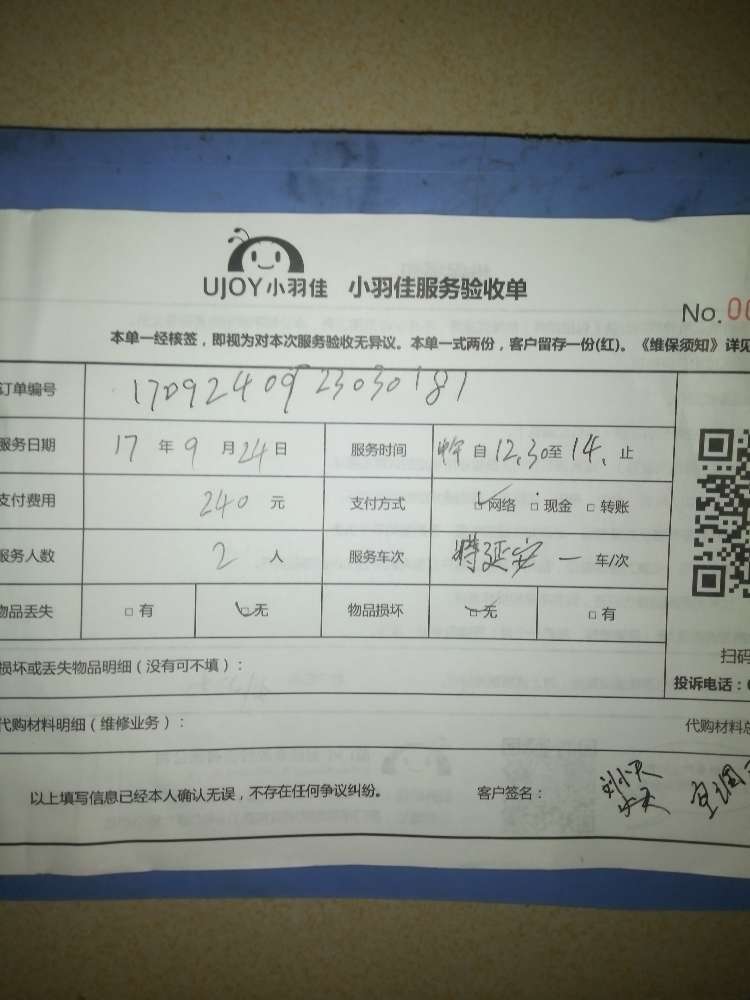 UJOY小羽佳 小羽佳服务验收单
No.00
本单一经核签，即视为对本次服务验收无异议。本单一式两份，客户留存一份(红)。《维保须知》详见
订单编号 1709240923030181
服务日期 17 年 9 月 24 日 服务时间 自 12.30 至 14. 止
支付费用 240 元 支付方式 ☑网络 □现金 □转账
服务人数 2 人 服务车次 一 车/次
物品丢失 □有 ☑无 物品损坏 ☑无 □有
扫码
损坏或丢失物品明细（没有可不填）：
投诉电话：
代购材料明细（维修业务）： 代购材料总
以上填写信息已经本人确认无误，不存在任何争议纠纷。 客户签名： 空调